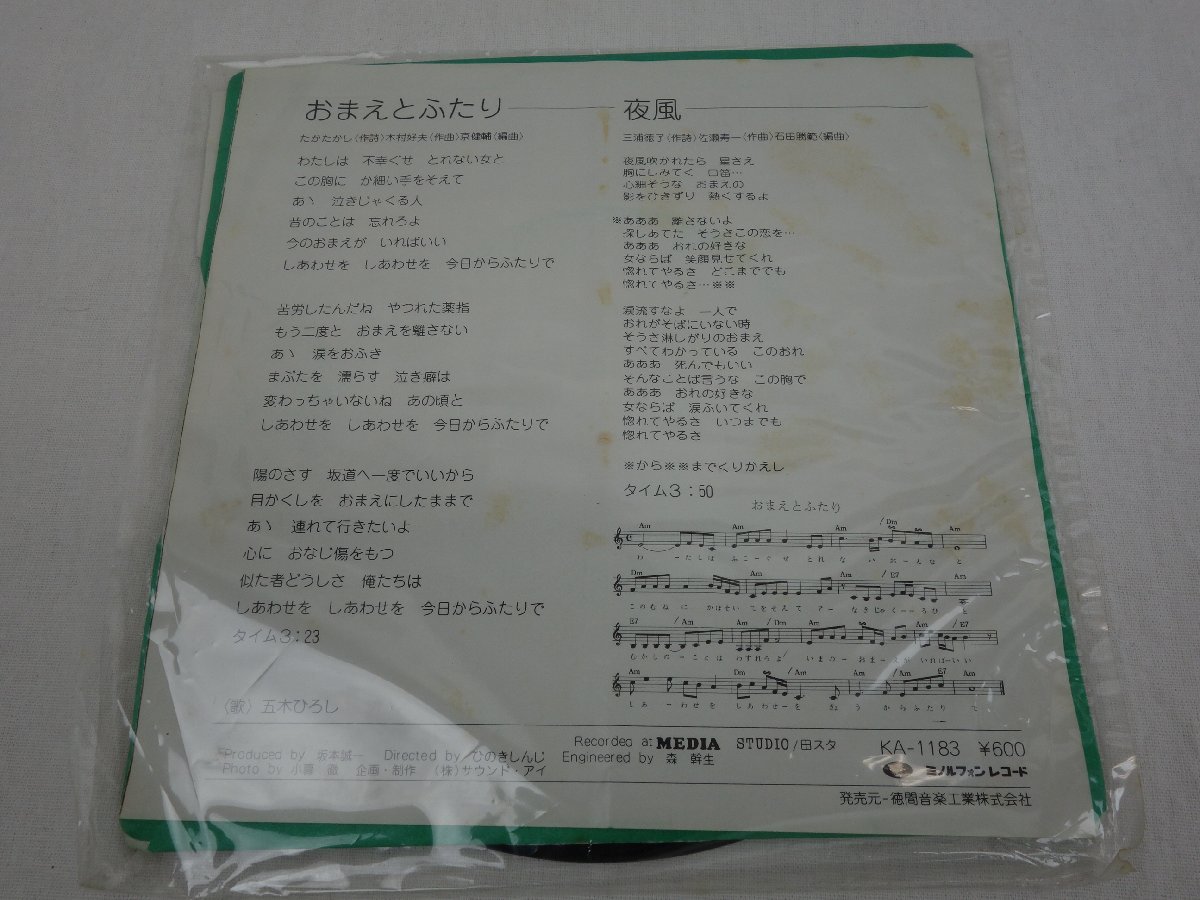 おまえとふたり
たかたかし〈作詩〉木村好夫〈作曲〉京健輔〈編曲〉
わたしは 不幸ぐせ とれない女と
この胸に か細い手をそえて
あゝ 泣きじゃくる人
昔のことは 忘れろよ
今のおまえが いればいい
しあわせを しあわせを 今日からふたりで
苦労したんだね やつれた薬指
もう二度と おまえを離さない
あゝ 涙をおふき
まぶたを 濡らす 泣き癖は
変わっちゃいないね あの頃と
しあわせを しあわせを 今日からふたりで
陽のさす 坂道へ一度でいいから
目かくしを おまえにしたままで
あゝ 連れて行きたいよ
心に おなじ傷をもつ
似た者どうしさ 俺たちは
しあわせを しあわせを 今日からふたりで
タイム3:23
〈歌〉五木ひろし
夜風
三浦徳子〈作詩〉佐瀬寿一〈作曲〉石田勝範〈編曲〉
夜風吹かれたら 星さえ
胸にしみてく 口笛…
心細そうな おまえの
影をひきずり 熱くするよ
※あああ 離さないよ
探しあてた そうさこの恋を…
あああ おれの好きな
女ならば 笑顔見せてくれ
惚れてやるさ どこまででも
惚れてやるさ…※※
涙流すなよ 一人で
おれがそばにいない時
そうさ淋しがりのおまえ
すべてわかっている このおれ
あああ 死んでもいい
そんなことば言うな この胸で
あああ おれの好きな
女ならば 涙ふいてくれ
惚れてやるさ いつまでも
惚れてやるさ
※から※※までくりかえし
タイム3:50
おまえとふたり
Am Am Am /Dm Am
わーたしは ふこーぐせ とれな いおーえなと
Dm Am Am /E7 Am
このむねに かほそい てをそえて アー なきじゃくーーるひと
E7 /Am Am/Dm Am Am /E7
むかしのーことは わすれろよ いまのー おまーえが いればーいい
Am Dm Am E7 Am
しあーわせを しあわせーを きょう からふたり で
Produced by 坂本誠一 Directed by ひのきしんじ
Photo by 小暮 徹 企画・制作 (株)サウンド・アイ
Recorded at MEDIA STUDIO/田スタ
Engineered by 森 幹生
KA-1183 ¥600
ミノルフォンレコード
発売元-徳間音楽工業株式会社